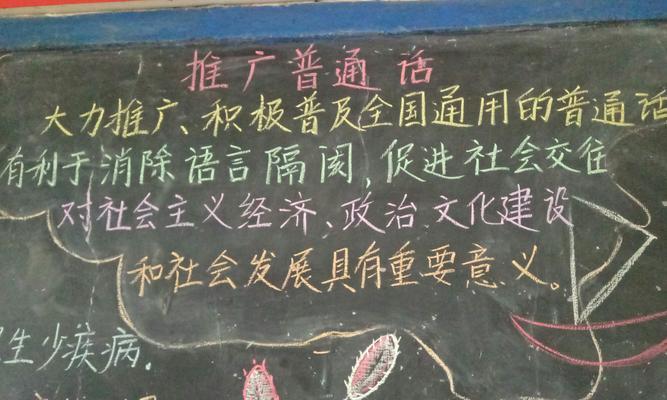 推广普通话
大力推广、积极普及全国通用的普通话
有利于消除语言隔阂,促进社会交往
对社会主义经济、政治文化建设
和社会发展具有重要意义。
生少疾病.